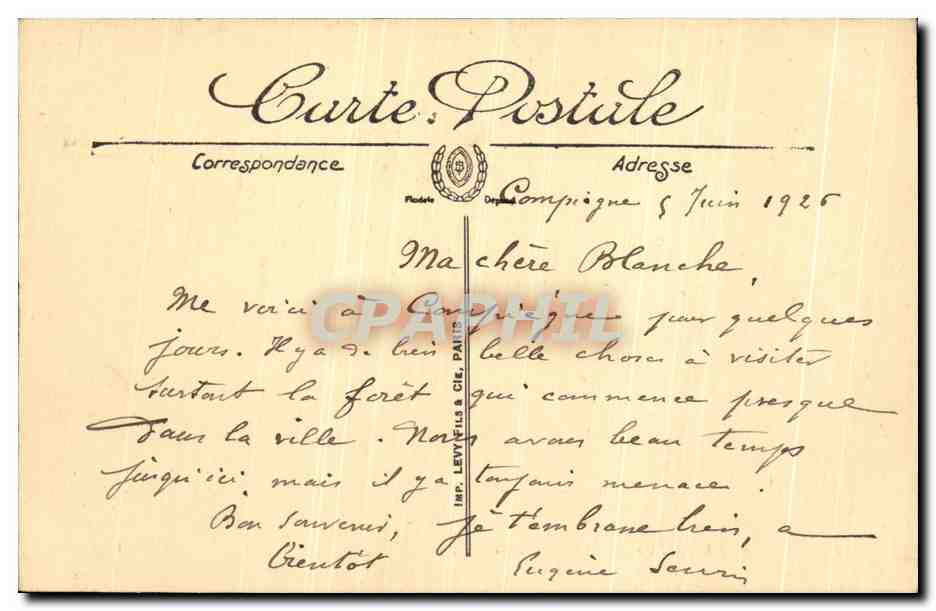 Carte Postale
Correspondance
Adresse
Modèle Déposé
Compiègne 5 Juin 1926
Ma chère Blanche,
Me voici à Compiègne pour quelques
jours. Il y a de bien belle choses à visiter
surtout la forêt qui commence presque
dans la ville. Nous avons beau temps
jusqu'ici mais il y a toujours menace.
Bon souvenir, je t'embrasse bien, a
bientôt Eugénie
IMP. LEVY FILS & CIE, PARIS
CPAPHIL